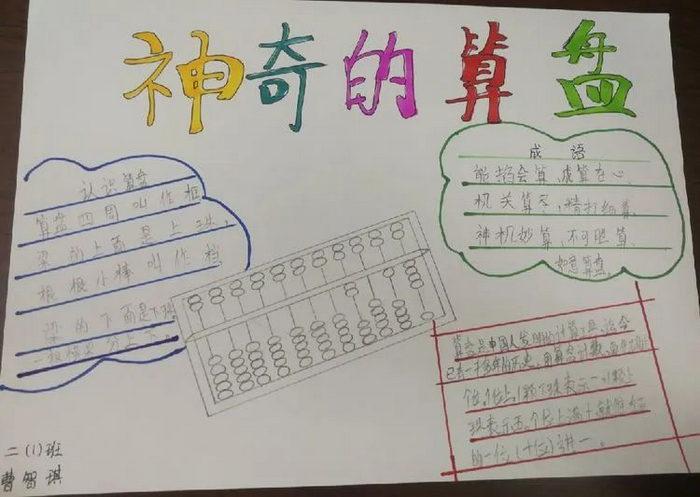 神奇的算盘
认识算盘
算盘四周叫作框
梁的上面是上珠，
根根小棒叫作档
梁的下面是下珠
一根横梁分上下。
成语
能掐会算，成算在心
机关算尽，精打细算，
神机妙算，不可胜算，
如意算盘。
算盘是中国人发明的计算工具，迄今
已有一千多年的历史，用算盘计数
个位，个位上，1颗下珠表示一，1颗上
珠表示五，个位上满十就向前
的一位（十位）进一。
二（1）班
曹智琪